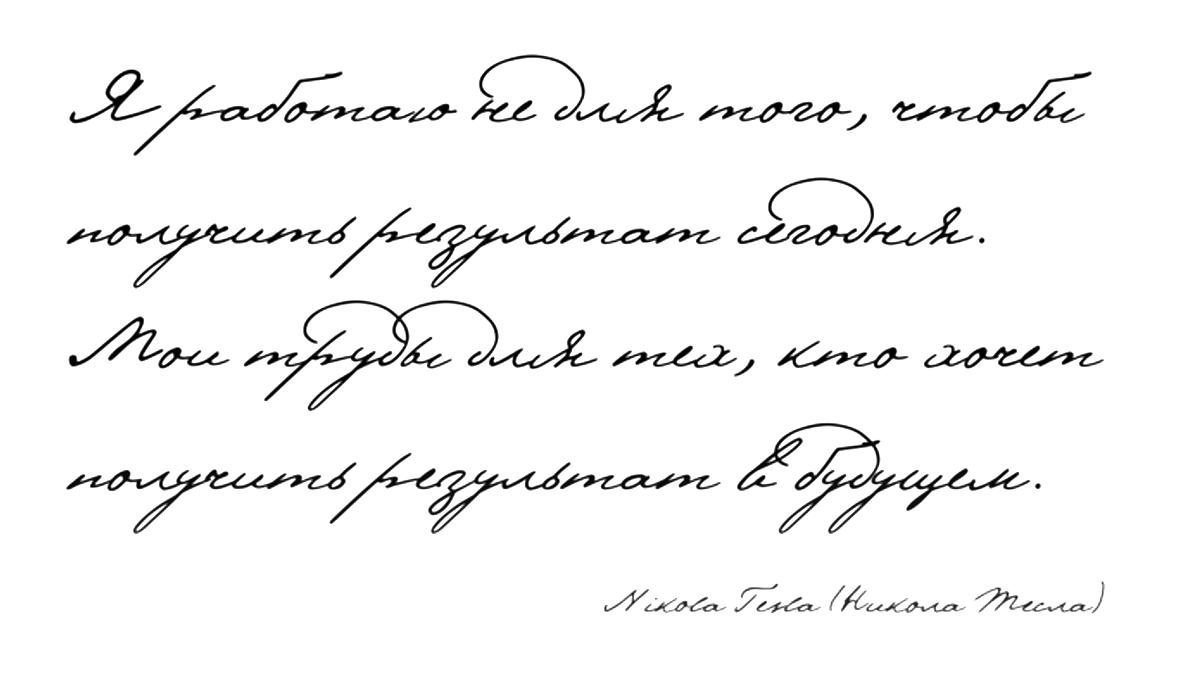 Я работаю не для того, чтобы
получить результат сегодня.
Мои труды для тех, кто хочет
получить результат в будущем.
Nikola Tesla (Никола Тесла)